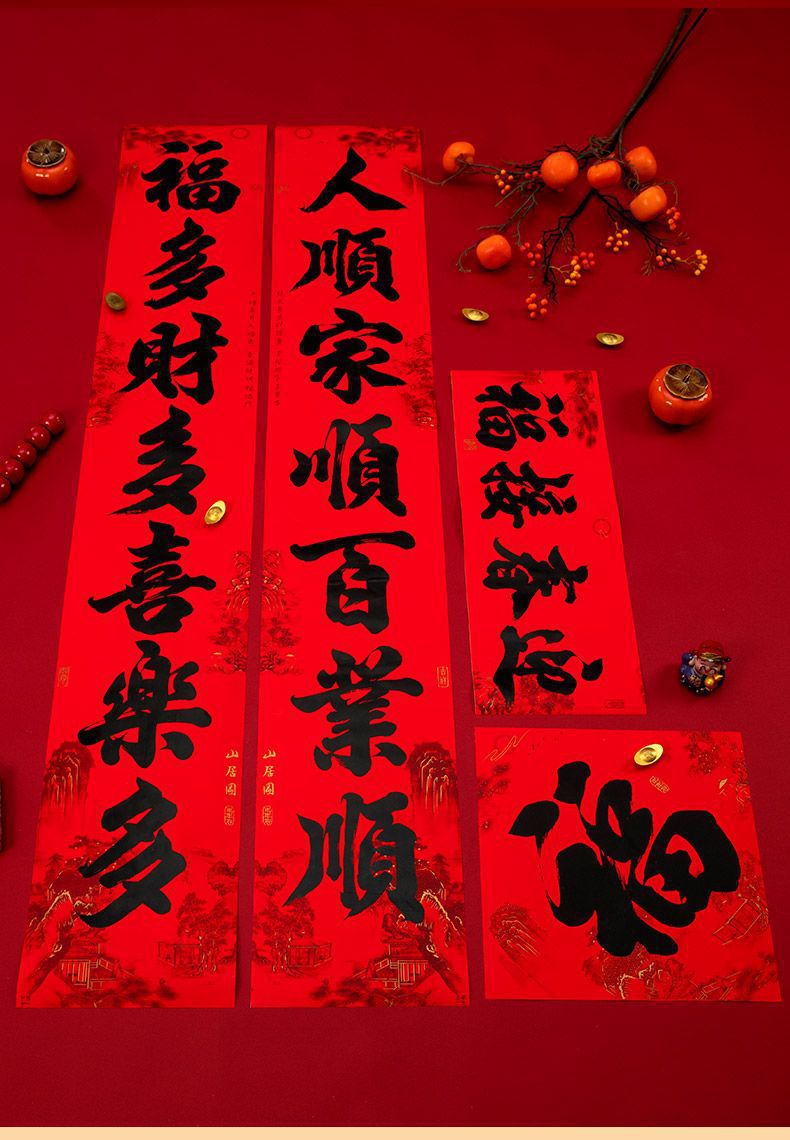 人順家順百業順
福多財多喜樂多
迎春接福
福
山居圖
山居圖